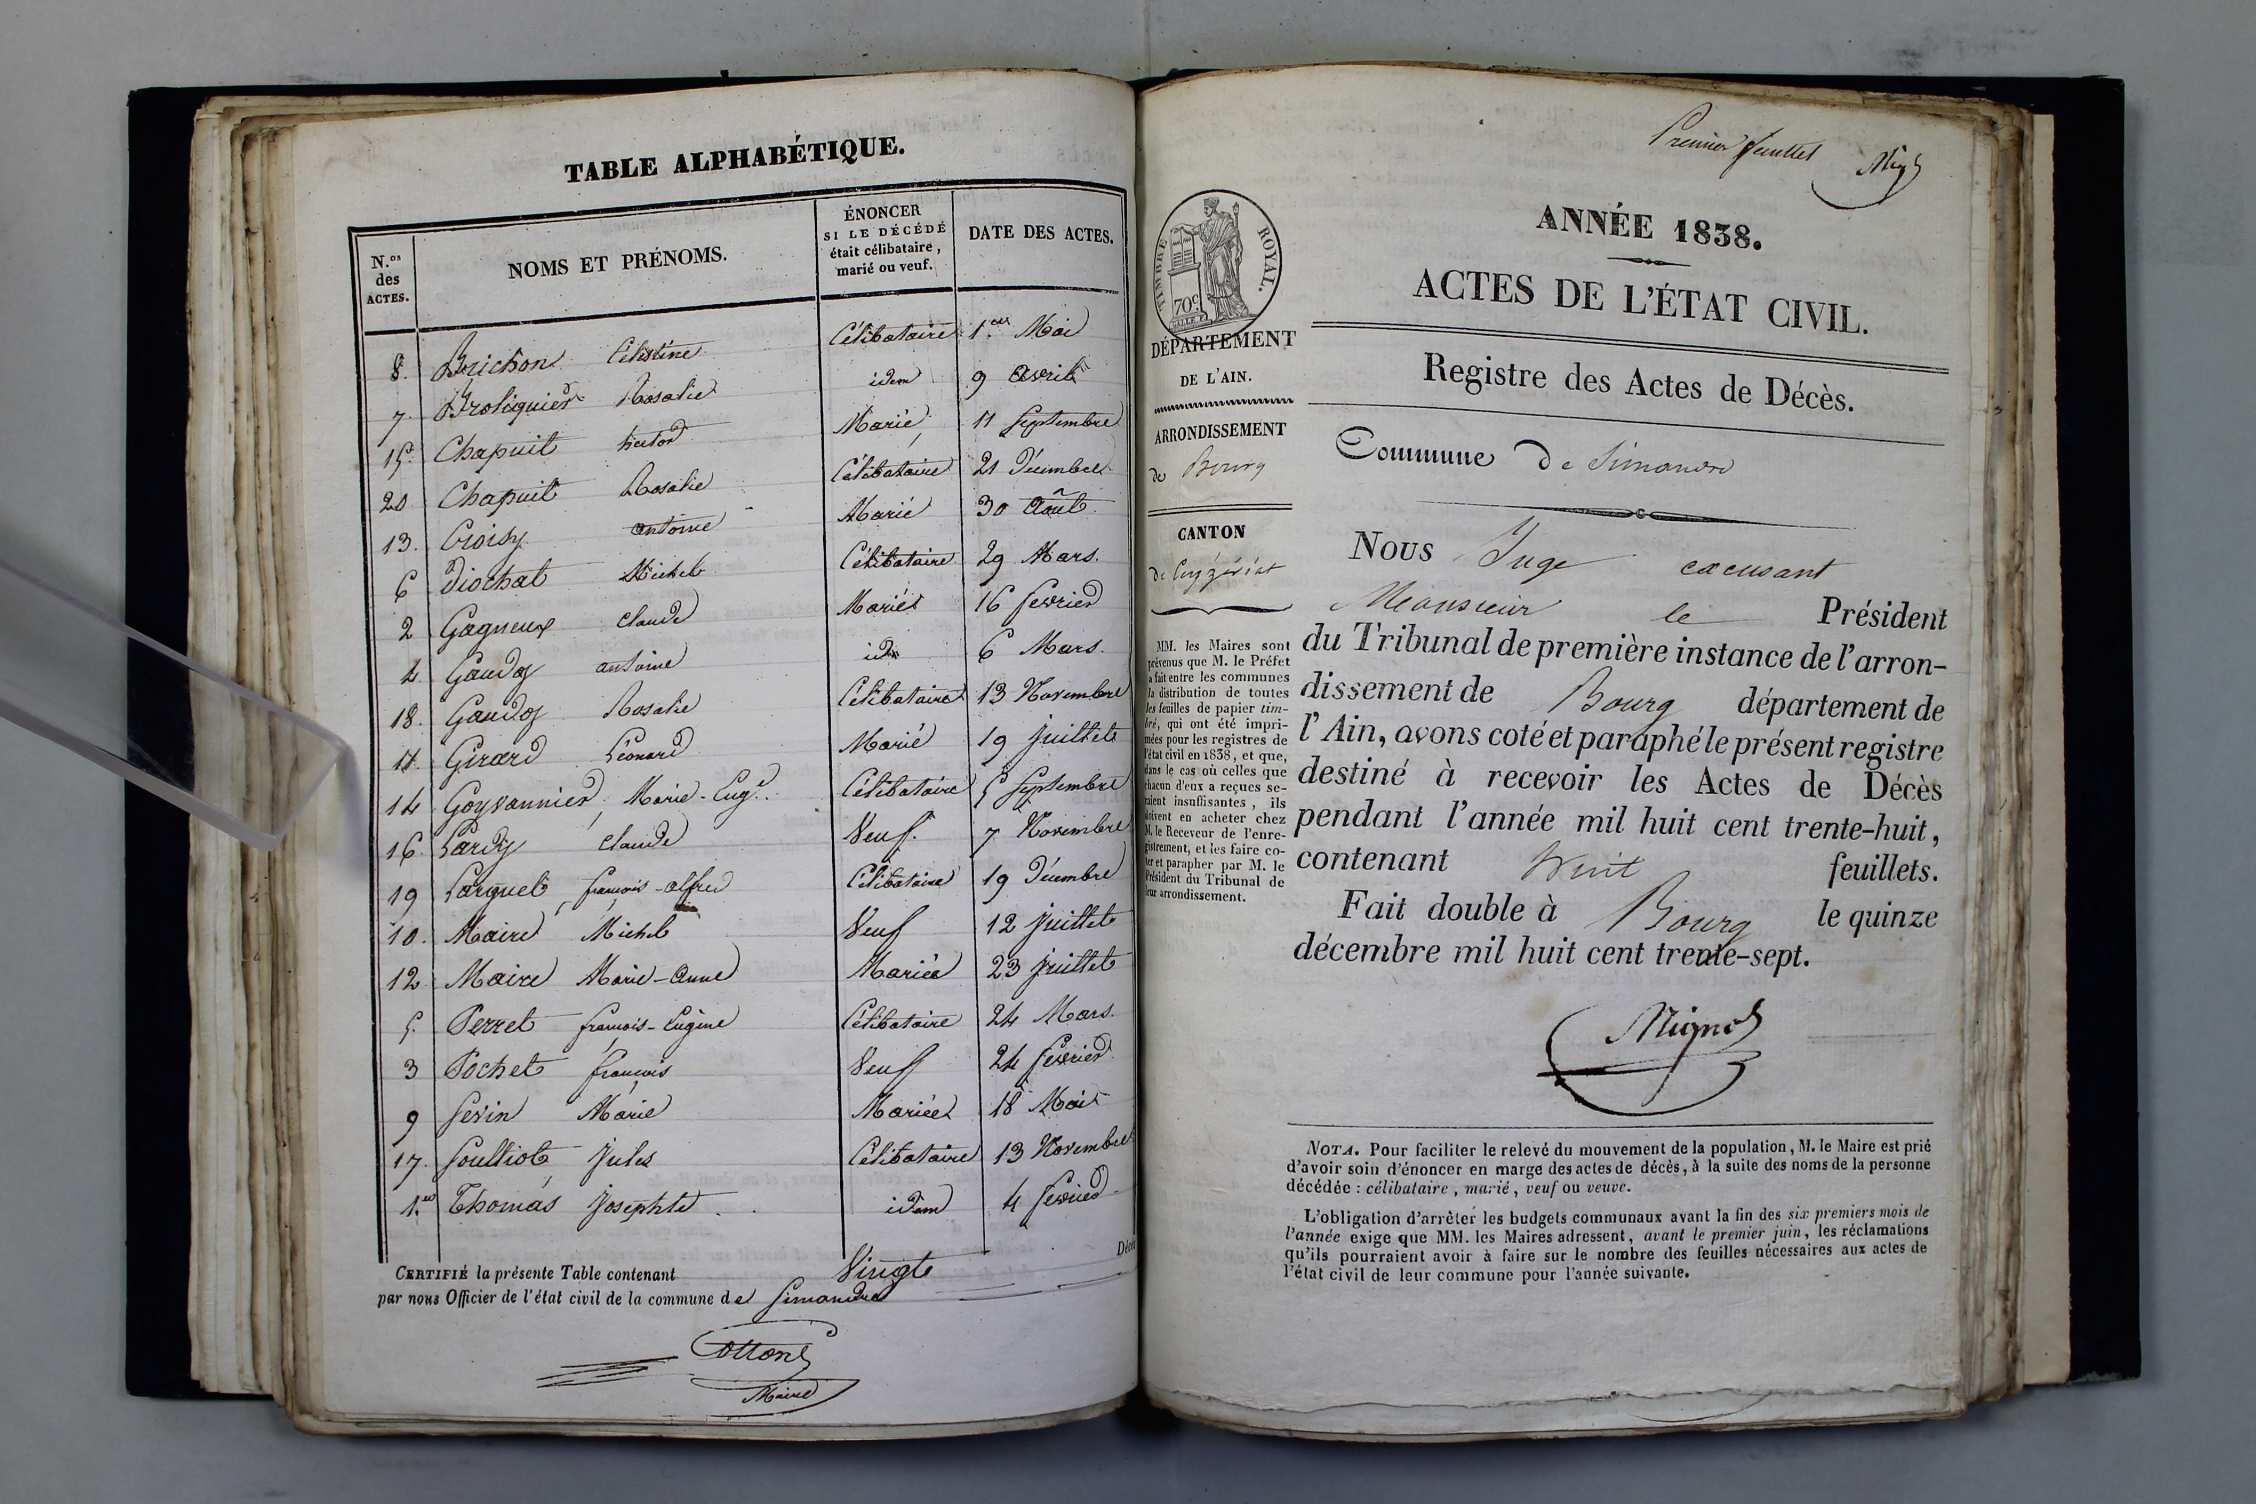 TABLE ALPHABÉTIQUE.
N.os des ACTES.
NOMS ET PRÉNOMS.
ÉNONCER SI LE DÉCÉDÉ était célibataire, marié ou veuf.
DATE DES ACTES.
8. Brichon Célestine Célibataire 1er Mai
7. Broliquier Rosalie idem 9 avril
15. Chapuit hector Marié 11 Septembre
20 Chapuit Rosalie Célibataire 21 Décembre
13. Croisy antoine Marié 30 Août
6 Diochat Michel Célibataire 29 Mars.
2 Gagneux Claude Mariés 16 fevrier
4 Gaudoz antoine idm 6 Mars.
18. Gaudoz Rosalie Célibataire 13 Novembre
11. Girard Léonard Marié 19 juillet
14 Goyvannier, Marie-Eug.e Célibataire 5 Septembre
16. Lardy Claude Veuf. 7 Novembre
19 Larquet, françois-alfred Célibataire 19 Décembre
10. Maire Michel Veuf 12 juillet
12. Maire Marie-anne Mariée 23 juillet
5. Perret françois-Eugène Célibataire 24 Mars.
3 Pochet françois Veuf 24 fevrier
9 Sevin Marie Mariée 18 Mai
17. Soulliot Jules Célibataire 13 Novembre
1.er Thomas Josephte idem 4 fevrier
CERTIFIÉ la présente Table contenant Vingt Décès
par nous Officier de l'état civil de la commune de Simandre
Cottons
Maire
Premier feuillet Mig
TIMBRE ROYAL.
70c
DÉPARTEMENT
DE L'AIN.
ARRONDISSEMENT
de Bourg
CANTON
de Ceyzériat
MM. les Maires sont
prévenus que M. le Préfet
a fait entre les communes
la distribution de toutes
les feuilles de papier tim-
bré, qui ont été impri-
mées pour les registres de
l'état civil en 1838, et que,
dans le cas où celles que
chacun d'eux a reçues se-
raient insuffisantes, ils
doivent en acheter chez
M. le Receveur de l'enre-
gistrement, et les faire co-
ter et parapher par M. le
Président du Tribunal de
leur arrondissement.
ANNÉE 1838.
ACTES DE L'ÉTAT CIVIL.
Registre des Actes de Décès.
Commune de Simandre
Nous Juge excusant
Monsieur le Président
du Tribunal de première instance de l'arron-
dissement de Bourg département de
l'Ain, avons coté et paraphé le présent registre
destiné à recevoir les Actes de Décès
pendant l'année mil huit cent trente-huit,
contenant huit feuillets.
Fait double à Bourg le quinze
décembre mil huit cent trente-sept.
NOTA. Pour faciliter le relevé du mouvement de la population, M. le Maire est prié
d'avoir soin d'énoncer en marge des actes de décès, à la suite des noms de la personne
décédée : célibataire, marié, veuf ou veuve.
L'obligation d'arrêter les budgets communaux avant la fin des six premiers mois de
l'année exige que MM. les Maires adressent, avant le premier juin, les réclamations
qu'ils pourraient avoir à faire sur le nombre des feuilles nécessaires aux actes de
l'état civil de leur commune pour l'année suivante.